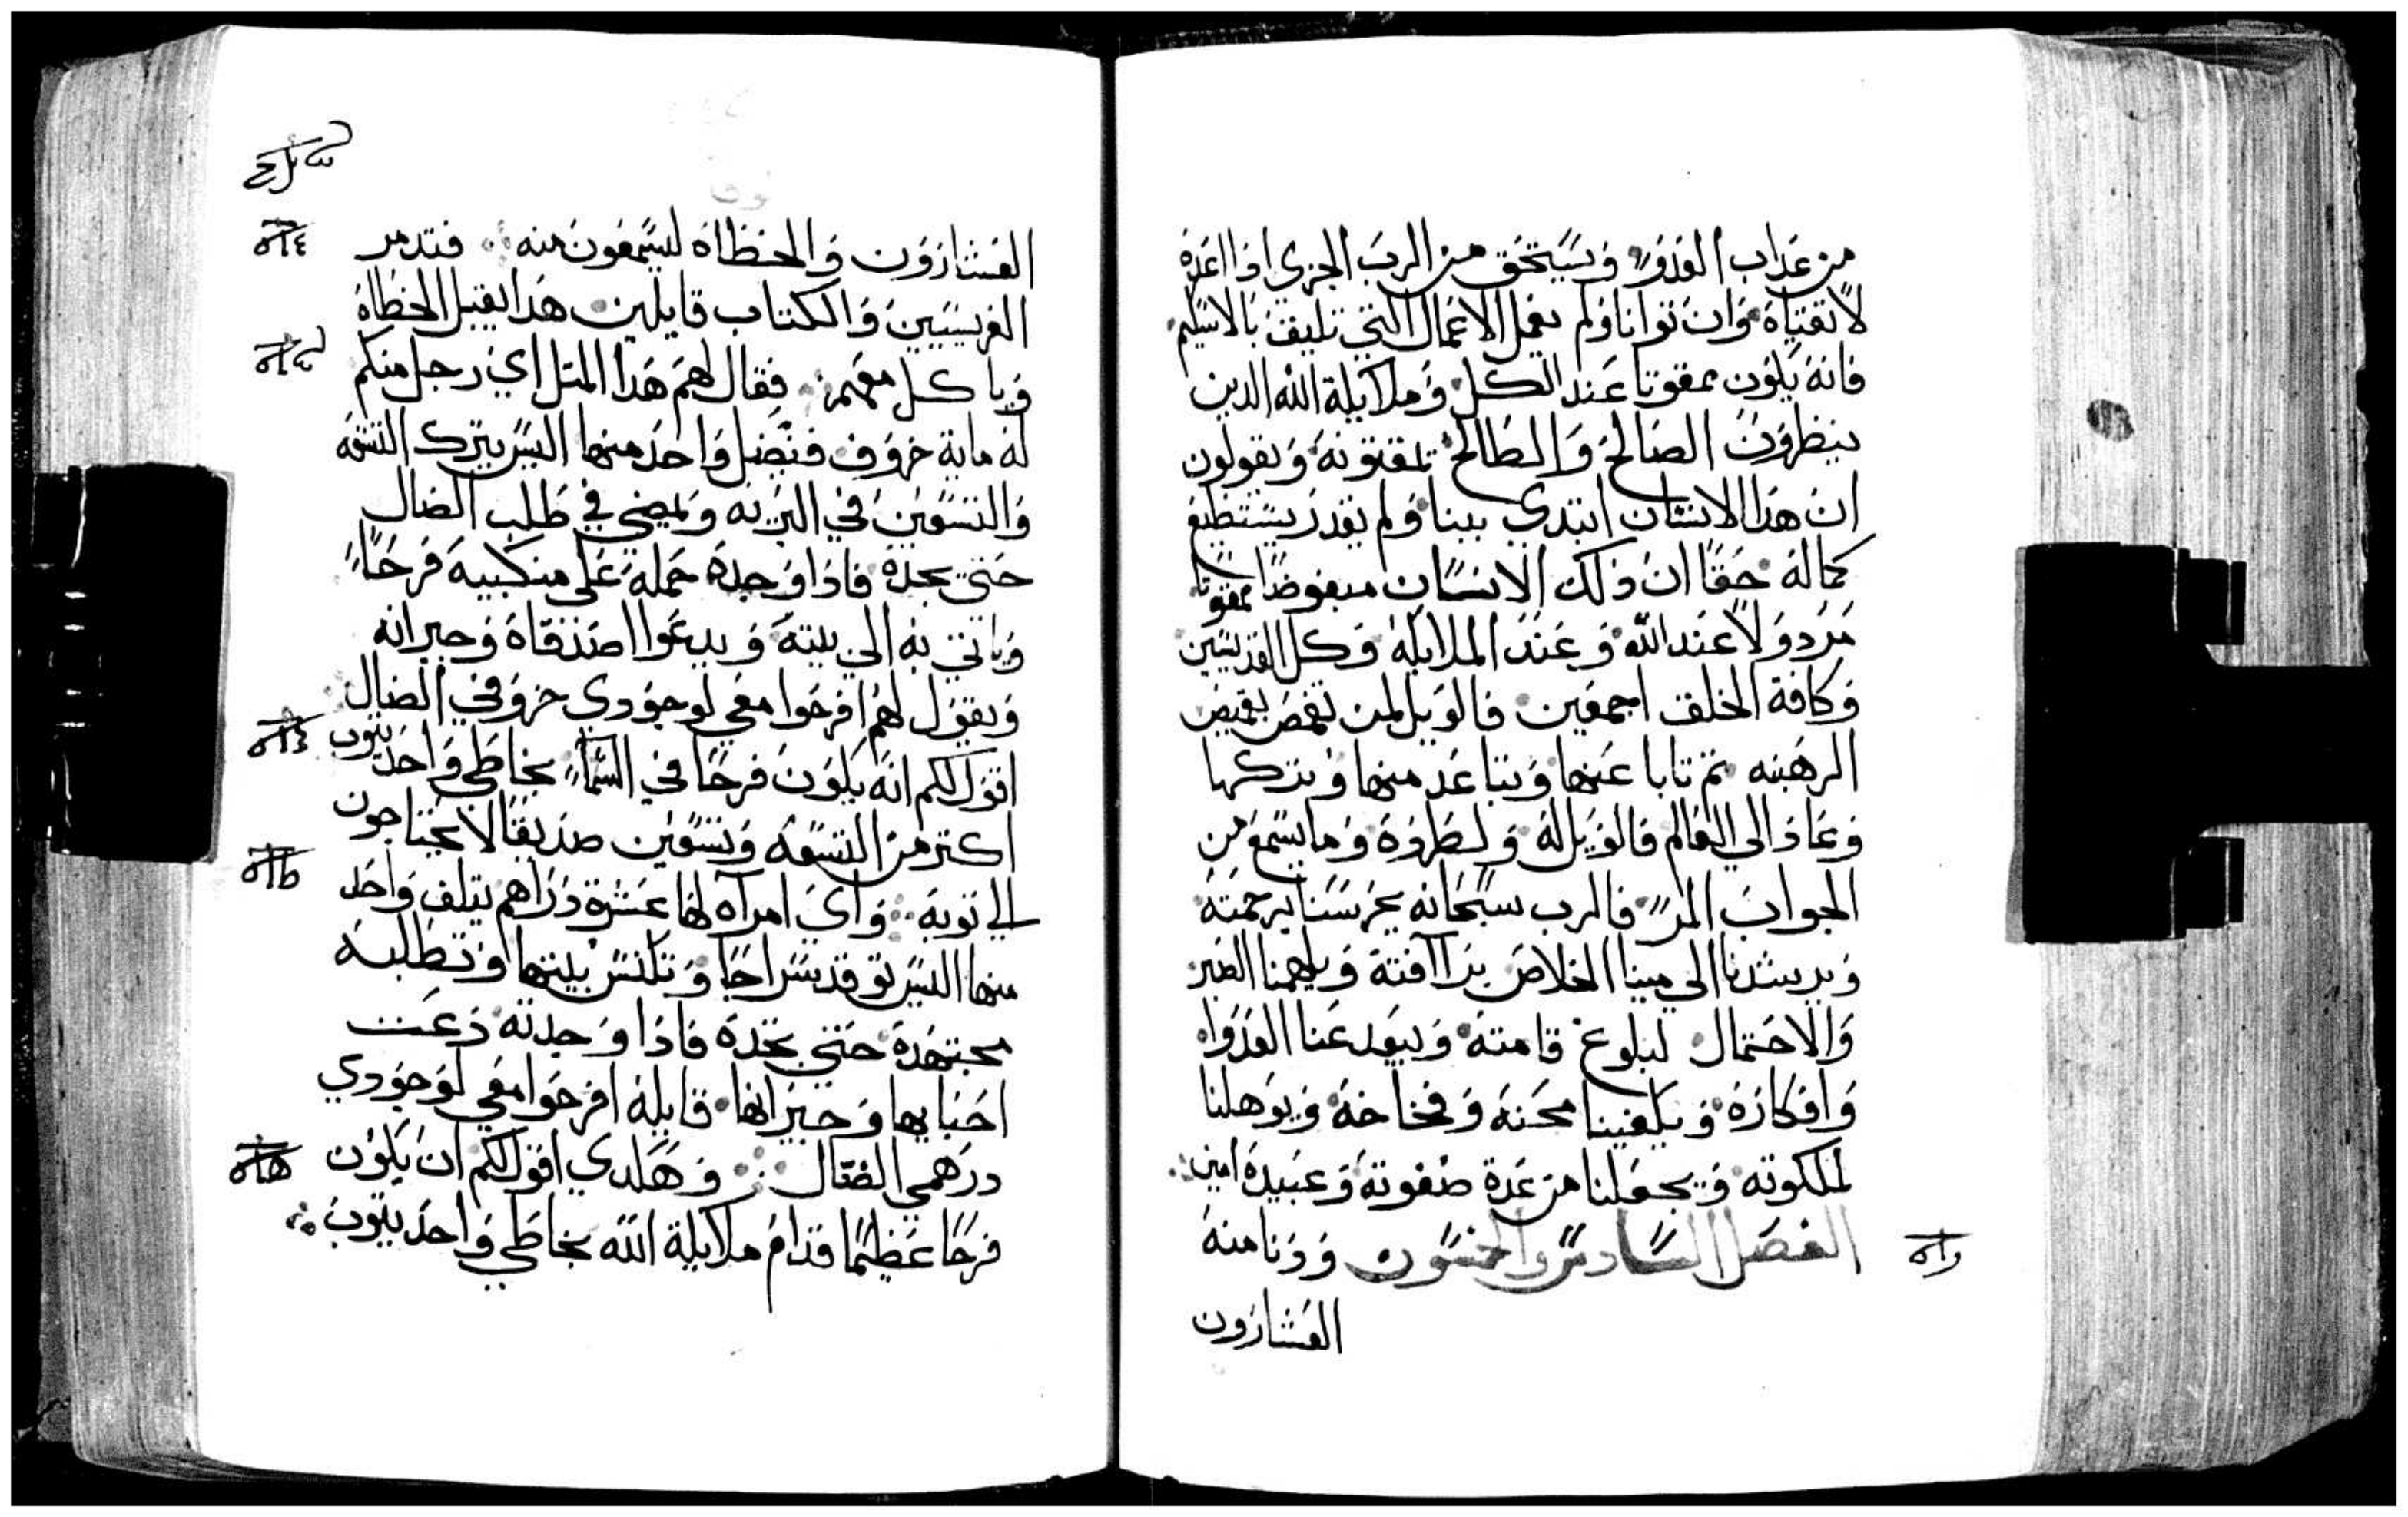 من عداب العدوّ وَيستحق من الرب الجزي اذا اعدهٔ
لاتقتياهٔ وان توانا ولم يعمل الاعمال التي تليق بالاسكيم
فانه يكون ممقوتا عند الكل وملايكة الله الدين
ينظرون الصالح والطالح تمقتونه ويقولون
ان هدا الانسان ابتدي يبنا ولم يقدر يستطيع
كماله حقا ان ذلك الانسان مبغوضا ممقوتا
مردولا عند الله وعند الملايكة وكل القديسين
وكافة الخلق اجمعين فالويل لمن تقمص بقميص
الرهبنه تم تابا عنها وبتاعد منها وبتركها
وعاد الي العالم فالويل له ولطروه وما يسمع من
الجواب المر فالرب سبحانه يحرسنا برحمته
ويرشدنا الي مينا الخلاص براافته ويلهمنا الصبر
والاحتمال لبلوغ قامته ويبعد عنا العدوا
وافكاره ويكفينا محنه وفخاخه ويوهلنا
لملكوته ويجعلنا من عدة صفوته وعبيده امين
الفصل السادس والخمسون ودنا منه
العشارون
العشارون والخطاه ليسمعون منه فتدمر
الفريسيين والكتاب قايلين هدا يقبل الخطاة
وياكل معهم فقال لهم هدا المتل اي رجل منكم
له ماية خروف فيضل واحد منها اليس يترك التسعه
والتسعين في البريه ويمضي في طلب الضال
حتي يجده فاذا وجده حمله علي منكبيه فرحا
وياتي به الي بيته ويدعوا اصدقاه وجيرانه
ويقول لهم افرحوا معي لوجودي خروفي الضال
اقول لكم انه يكون فرحا في السماء بخاطي واحد يتوب
اكتر من التسعه وتسعين صديقا لا يحتاجون
الي توبة واي امراه لها عشرة دراهم يتلف واحد
منها اليس توقد سراجا وتكنس بيتها وتطلبه
مجتهدة حتي تجده فاذا وجدته دعت
احبايها وجيرانها قايلة افرحوا معي لوجودي
درهمي الضال وهكدي اقول لكم ان يكون
فرحا عظيما قدام ملايكة الله بخاطي واحد يتوب